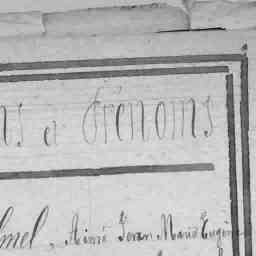 ns et Prénoms
mel, Aimé Jean Marie Eugène